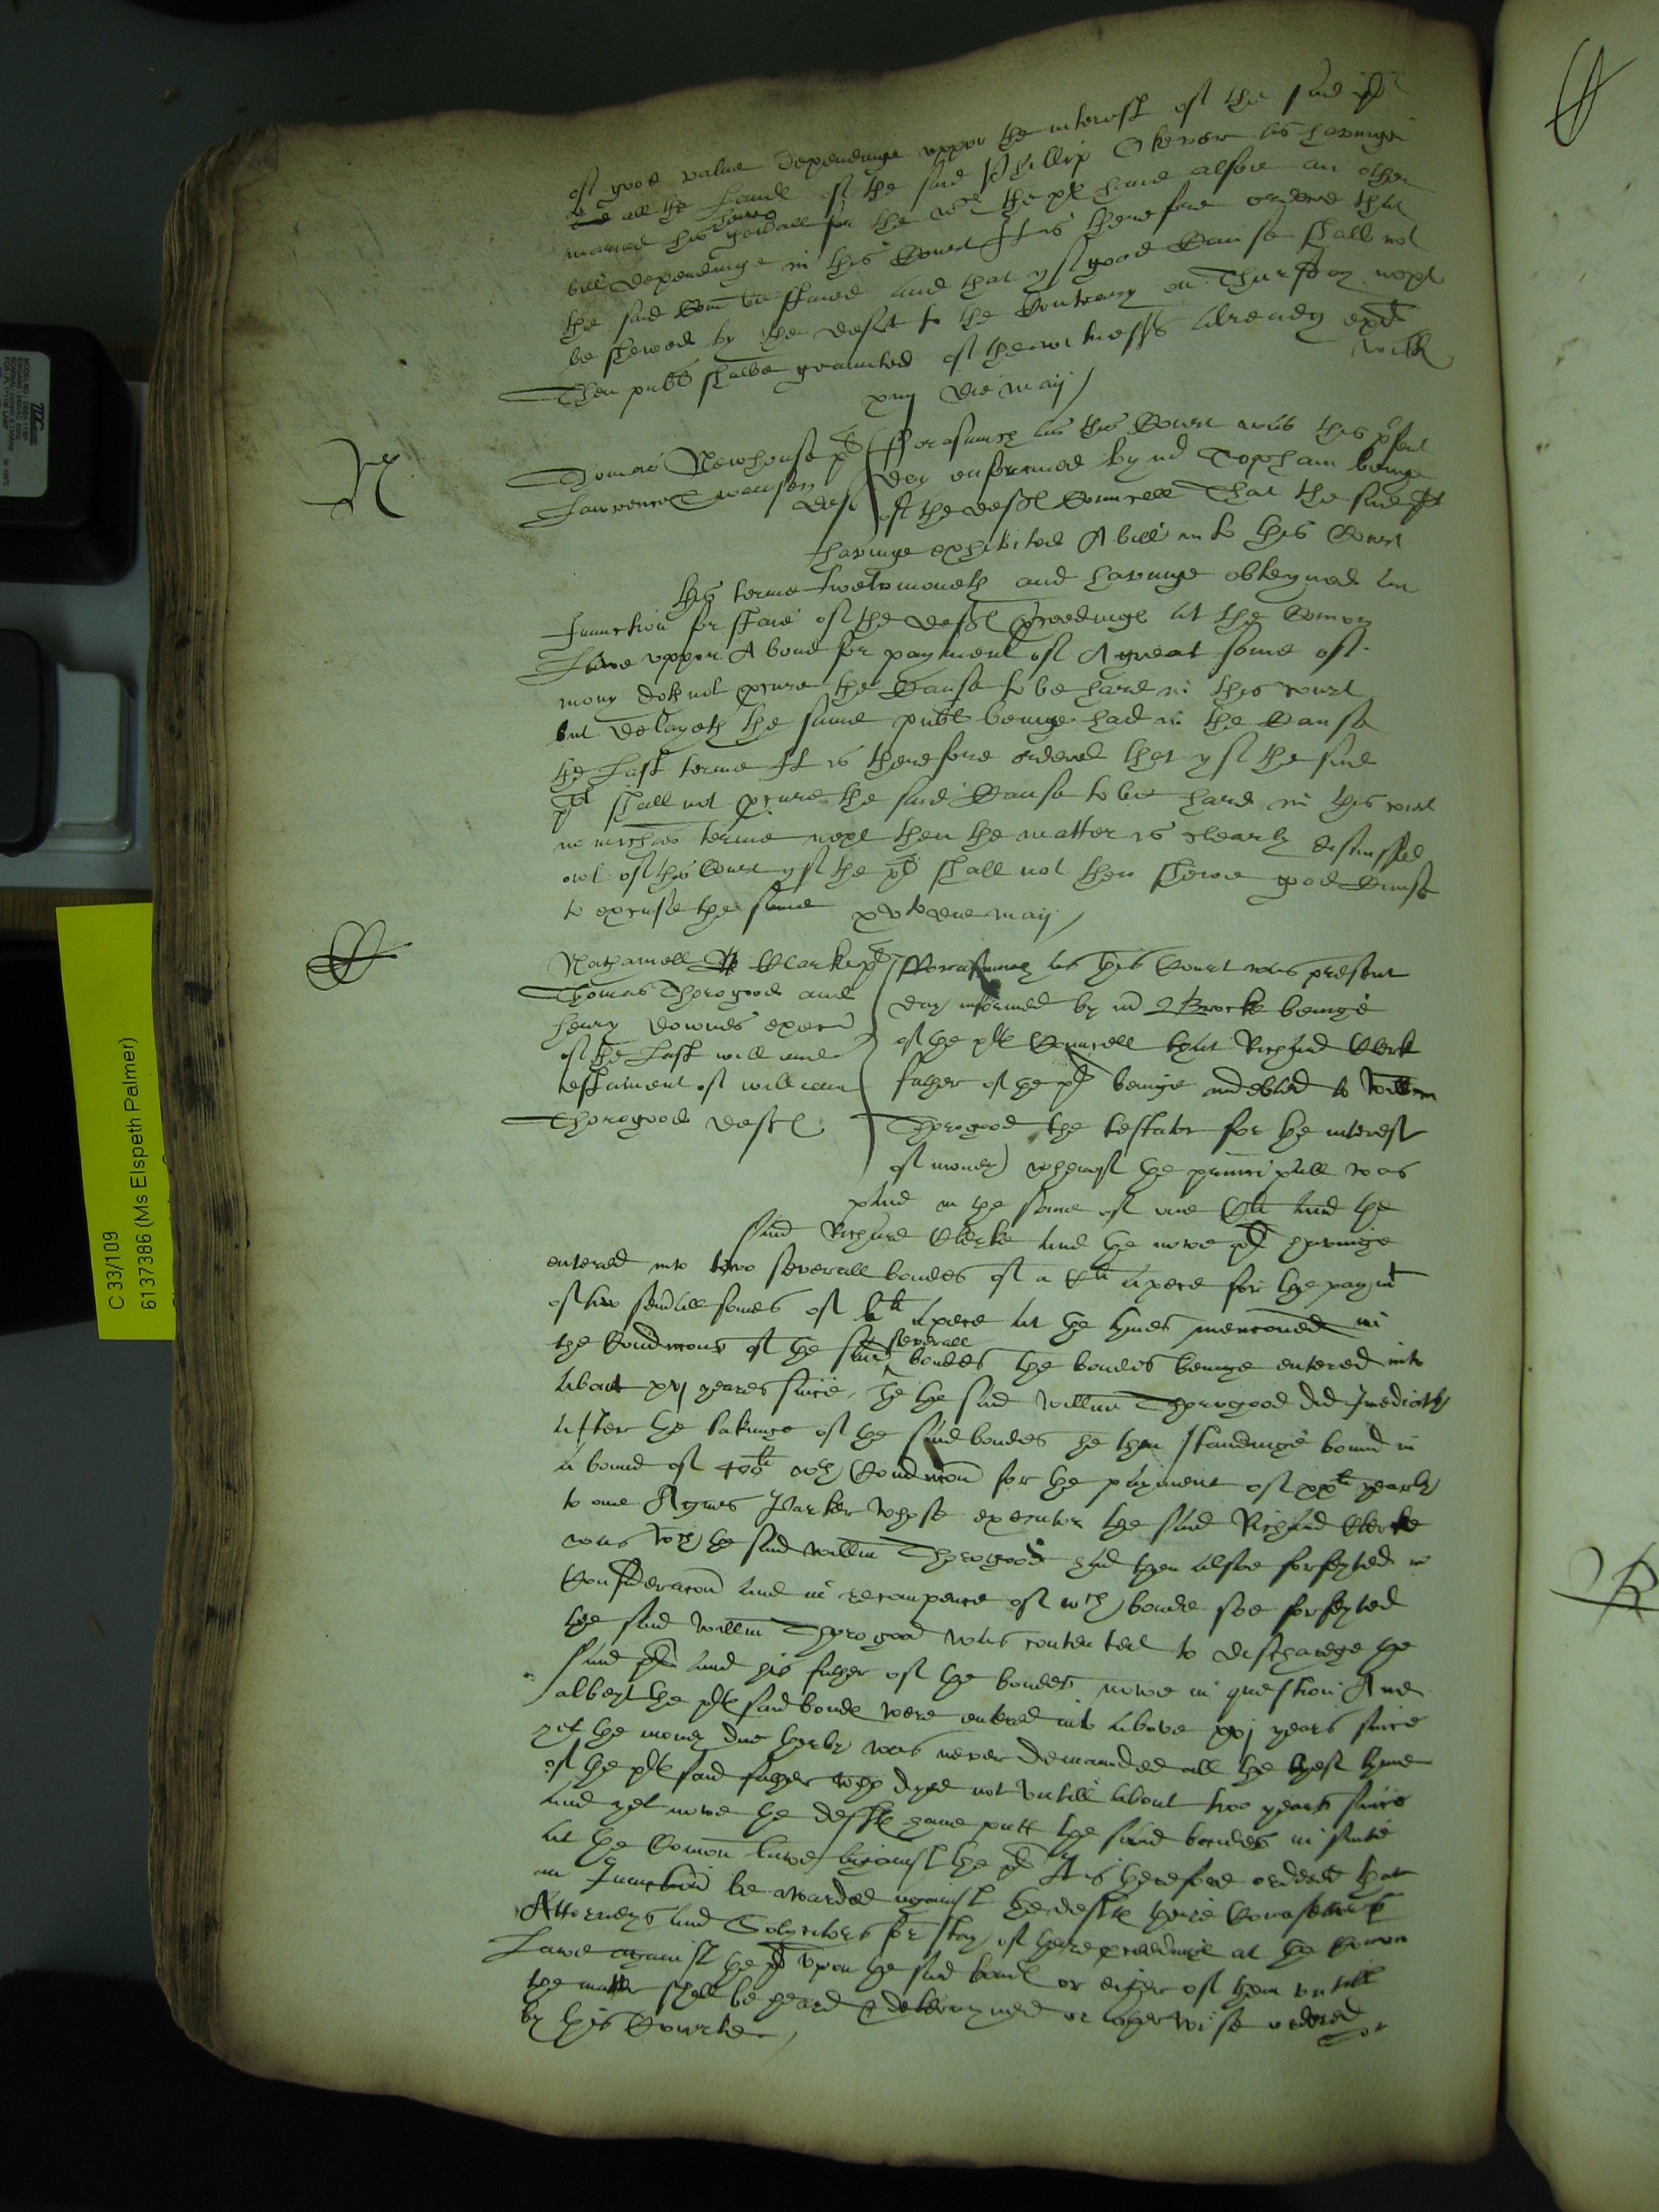 of good value dependinge uppon the interest of the said plt
and all the landℓ of the said Phillip Okever as havinge
maried his for the wch the plt have alsoe an other
bill dependinge in this Court It is therefore ordered that
the said Com be staied and that yf good Cause shall not
be shewed by the deft to the Contrary on Thursday next
Then publ shalbe graunted of the witnesses already exd
xiiij die maij
N
Thomas Newhouse plt
Lawrence deft
Forasmuch as this Court was this pſent
day enformed by mr Topham beinge
of the deftℓ Councell That the said plt
havinge exhibited A bill into this Court
this terme twelvmoneth and havinge obteyned an
Iunction for staie of the deftℓ proceedingℓ at the Comon
Lawe uppon A bond for payment of A great some of
mony doth not procure the Cause to be hard in this court
but delayeth the same publ beinge had in the Cause
the Last terme It is therefore ordered that yf the said
plt shall not procure the said Cause to be hard in this court
in michās terme next then the matter is clearly dismissed
out of this Court yf the plt shall not then shewe good Cause
to excuse the same xvto die maij
Nathaniell Clarke plt
Thomas Thorogood and
henry downes executℓ
of the Last will and
testament of william
Thorogood deftℓ
Forasmuch as this Court was present
day informed by mr Brocke beinge
of the pltℓ Councell that Richard Clerk
father of the plt beinge indebted to Willm
Thorogood the testator for the interest
of money whereof the principall was
paid in the some of one Cli and the
said Richard Clerke and the nowe plt havinge
entered into two severall bondes of a Cli apece for the paymt
of two severall somes of lli apece at the tymes mencioned in
the Condicions of the said severall bondes the bondes beinge entered into
about xvj yeares since, the said Willm Thorogood did Imediatly
after the takinge of the said bondes he then standinge bound in
a bound of 400li wth Condicion for the payment of xxli yearly
to one Agnes Parker whose executor the said Richard Clerke
was wch the said willm Thorogood had then alsoe forfeyted in
Consideracion and in recompence of wch bonde soe forfeyted
the said willm Thorogood was contented to discharge the
said plt and his father of the bondes nowe in question And
albeyt the pltℓ said bondℓ were entered into above xvj years since
yet the money due therby was never demaunded all the lyef tyme
of the pltℓ said father who dyed not untill about two yeares since
and yet nowe the deftℓ have putt the said bondes in suite
at the Comon Lawe against the plt It is therefore ordered that
an Iunction be awarded against the deftℓ their Counsellors
Attorneys and Solycitors for stay of there proceedingℓ at the Comon
Lawe against the plt upon the said bondℓ or either of them untill
the matter shall be heard & determyned or otherwise ordered
by this Courte
C 33/109
6137386 (Ms Elspeth Palmer)